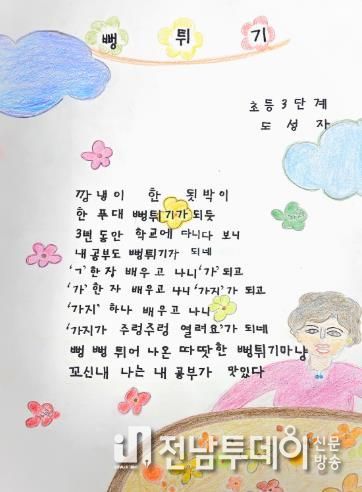 뻥 튀 기
초등3단계
도성자
깡냉이 한 됫박이
한 푸대 뻥튀기가 되듯
3년 동안 학교에 다니다 보니
내 공부도 뻥튀기가 되네
'ㄱ' 한 자 배우고 나니 '가' 되고
'가' 한 자 배우고 나니 '가지'가 되고
'가지' 하나 배우고 나니
'가지가 주렁주렁 열려요'가 되네
뻥 뻥 튀어 나온 따땃한 뻥튀기마냥
꼬신내 나는 내 공부가 맛있다
전남투데이 신문
방송